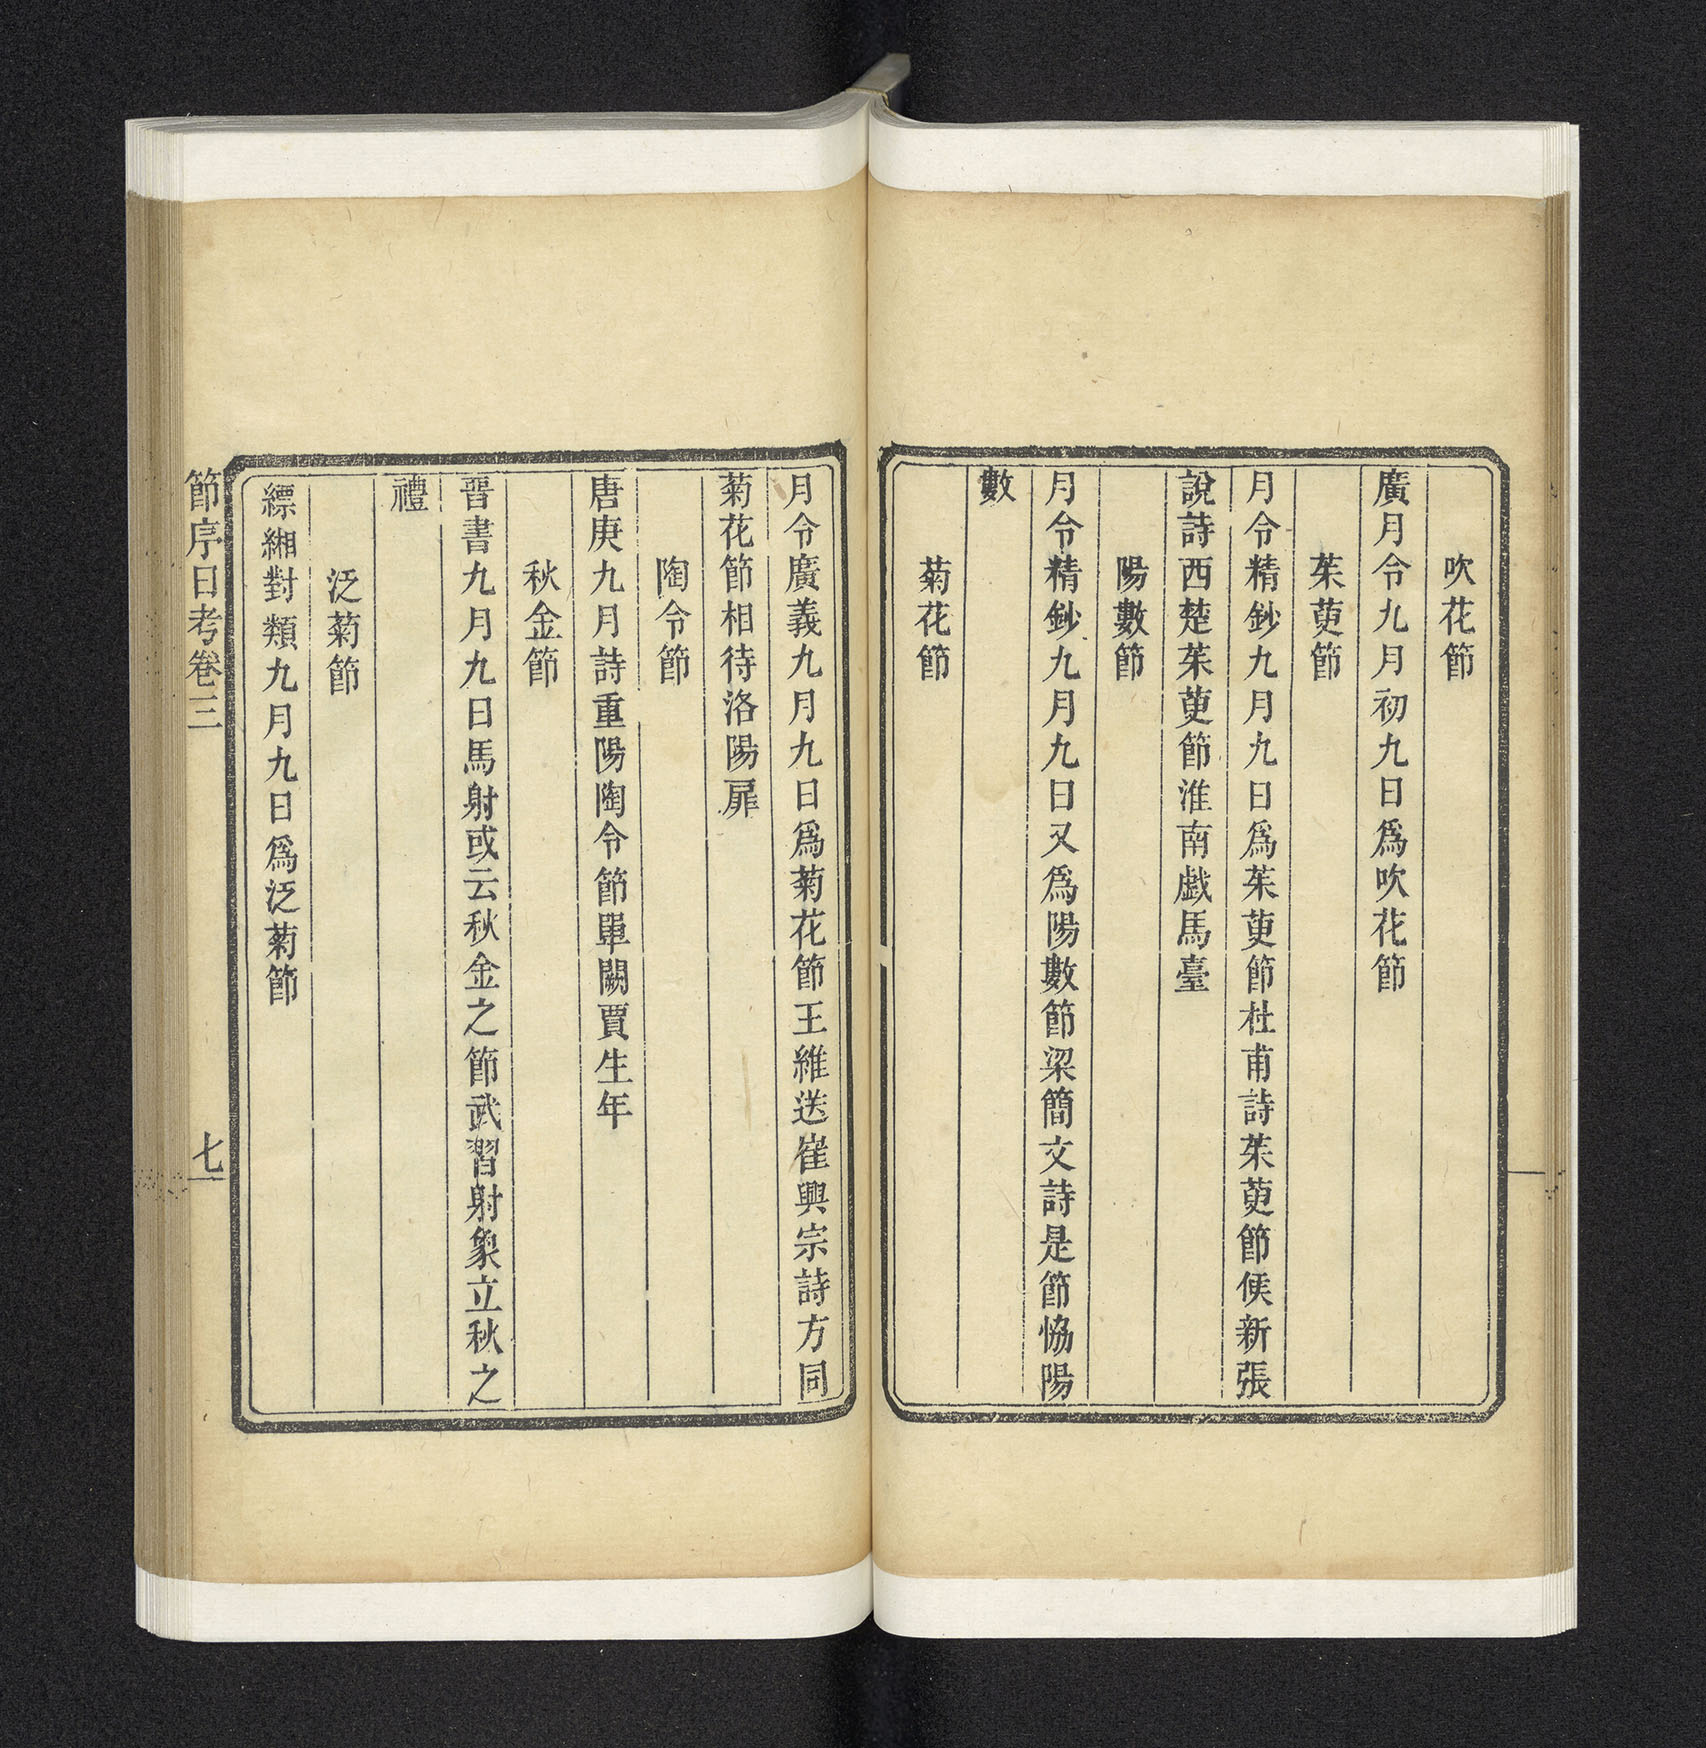 吹花節
廣月令九月初九日爲吹花節
茱萸節
月令精鈔九月九日爲茱萸節杜甫詩茱萸節候新張
說詩西楚茱萸節淮南戲馬臺
陽數節
月令精鈔九月九日又爲陽數節梁簡文詩是節恊陽
數
菊花節
月令廣義九月九日爲菊花節王維送崔興宗詩方同
菊花節相待洛陽扉
陶令節
唐庚九月詩重陽陶令節單閼賈生年
秋金節
晋書九月九日馬射或云秋金之節武習射象立秋之
禮
泛菊節
縹緗對類九月九日爲泛菊節
節序日考卷三
七